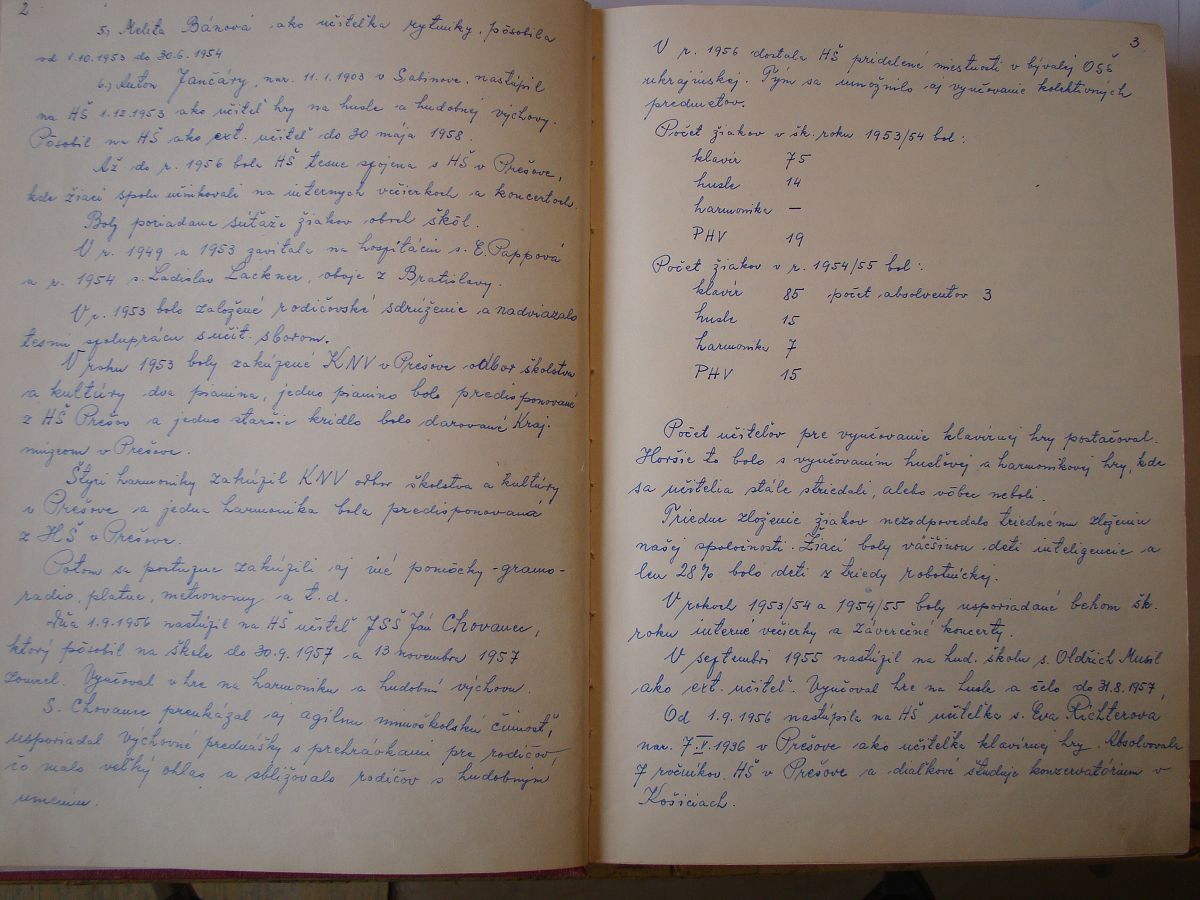 2
5., Melita Bánová ako učiteľka rytmiky, pôsobila
od 1.10.1953 do 30.6.1954
6., Anton Jančáry, nar. 11.1.1903 v Sabinove, nastúpil
na HŠ 1.12.1953 ako učiteľ hry na husle a hudobnej výchovy.
Pôsobil na HŠ ako ext. učiteľ do 30 mája 1958.
Až do r. 1956 bola HŠ tesne spojena s HŠ v Prešove,
kde žiaci spolu účinkovali na interných večierkoch a koncertoch.
Boly poriadane súťaže žiakov obech škôl.
V r. 1949 a 1953 zavítala na hospitáciu s. E. Pappová
a r. 1954 s. Ladislav Lackner, oboje z Bratislavy.
V r. 1953 bolo založené rodičovské sdrúženie a nadviazalo
tesnú spoluprácu s učit. sborom.
V roku 1953 boly zakúpené KNV v Prešove odbor školstva
a kultúry dva pianína, jedno pianino bolo predisponované
z HŠ Prešov a jedno staršie krídlo bolo darované Kraj.
múzeom v Prešove.
Štyri harmoniky zakúpil KNV odbor školstva a kultúry
v Prešove a jedna harmonika bola predisponovaná
z HŠ v Prešove.
Potom sa postupne zakúpili aj iné pomôcky - gramo-
radio, platne, metronomy a t.d.
Dňa 1.9.1956 nastúpil na HŠ učiteľ JSŠ Ján Chovanec,
ktorý pôsobil na škole do 30.9.1957 a 13 novembra 1957
zomrel. Vyučoval v hre na harmoniku a hudobnú výchovu.
S. Chovanec preukázal aj agilnu mimoškolskú činnosť,
usporiadal výchovné prednášky s prehrávkami pre rodičov,
čo malo veľký ohlas a sbližovalo rodičov s hudobným
umením.
3
V r. 1956 dostala HŠ pridelené miestnosti v bývalej OSŠ
ukrajinskej. Tým sa umožnilo aj vyučovanie kolektívnych
predmetov.
Počet žiakov v šk. roku 1953/54 bol:
klavír 75
husle 14
harmonika —
PHV 19
Počet žiakov v r. 1954/55 bol:
klavír 85 počet absolventov 3
husle 15
harmonika 7
PHV 15
Počet učiteľov pre vyučovanie klavírnej hry postačoval.
Horšie to bolo s vyučovaním husľovej a harmonikovej hry, kde
sa učitelia stále striedali, alebo vôbec neboli.
Triedne zloženie žiakov nezodpovedalo triednému zloženiu
našej spoločnosti. Žiaci boly väčšinou deti inteligencie a
len 28% bolo deti z triedy robotníckej.
V rokoch 1953/54 a 1954/55 boly usporiadané behom šk.
roku interné večierky a záverečné koncerty.
V septembri 1955 nastúpil na hud. školu s. Oldrich Musil
ako ext. učiteľ. Vyučoval hre na husle a čelo do 31.8.1957,
Od 1.9.1956 nastúpila na HŠ učiteľka s. Eva Richterova
nar. 7.V.1936 v Prešove ako učiteľka klavírnej hry. Absolvovala
7 ročníkov HŠ v Prešove a diaľkové študuje konzervatórium v
Košiciach.